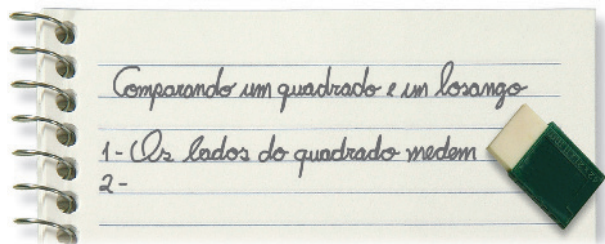 Comparando um quadrado e um losango
1- Os lados do quadrado medem
2-